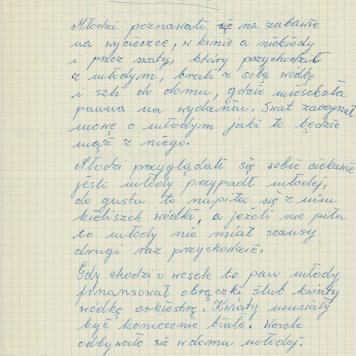 Młodzi poznawali się na zabawie
na wycieczce, w kinie a niekiedy
i przez swaty, który przychodził
z młodym, brali z sobą wódkę
i szli do domu, gdzie mieszkała
panna na wydaniu. Swat zaczynał
mowę o młodym jaki to będzie
mąż z niego.
Młodzi przyglądali się sobie ciekawie
jeśli młody przypadł młodej,
do gustu to napiła się z nim
kieliszek wódki, a jeżeli nie piła
to młody nie miał szansy
drugi raz przychodzić.
Gdy chodzi o wesele to pan młody
finansował obrączki ślub kwiaty
wódkę orkiestrę. Kwiaty musiały
być koniecznie białe. Wesele
odbywało się w domu młodej.